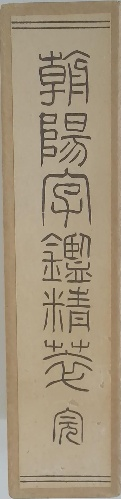 朝陽字鑑精萃 完